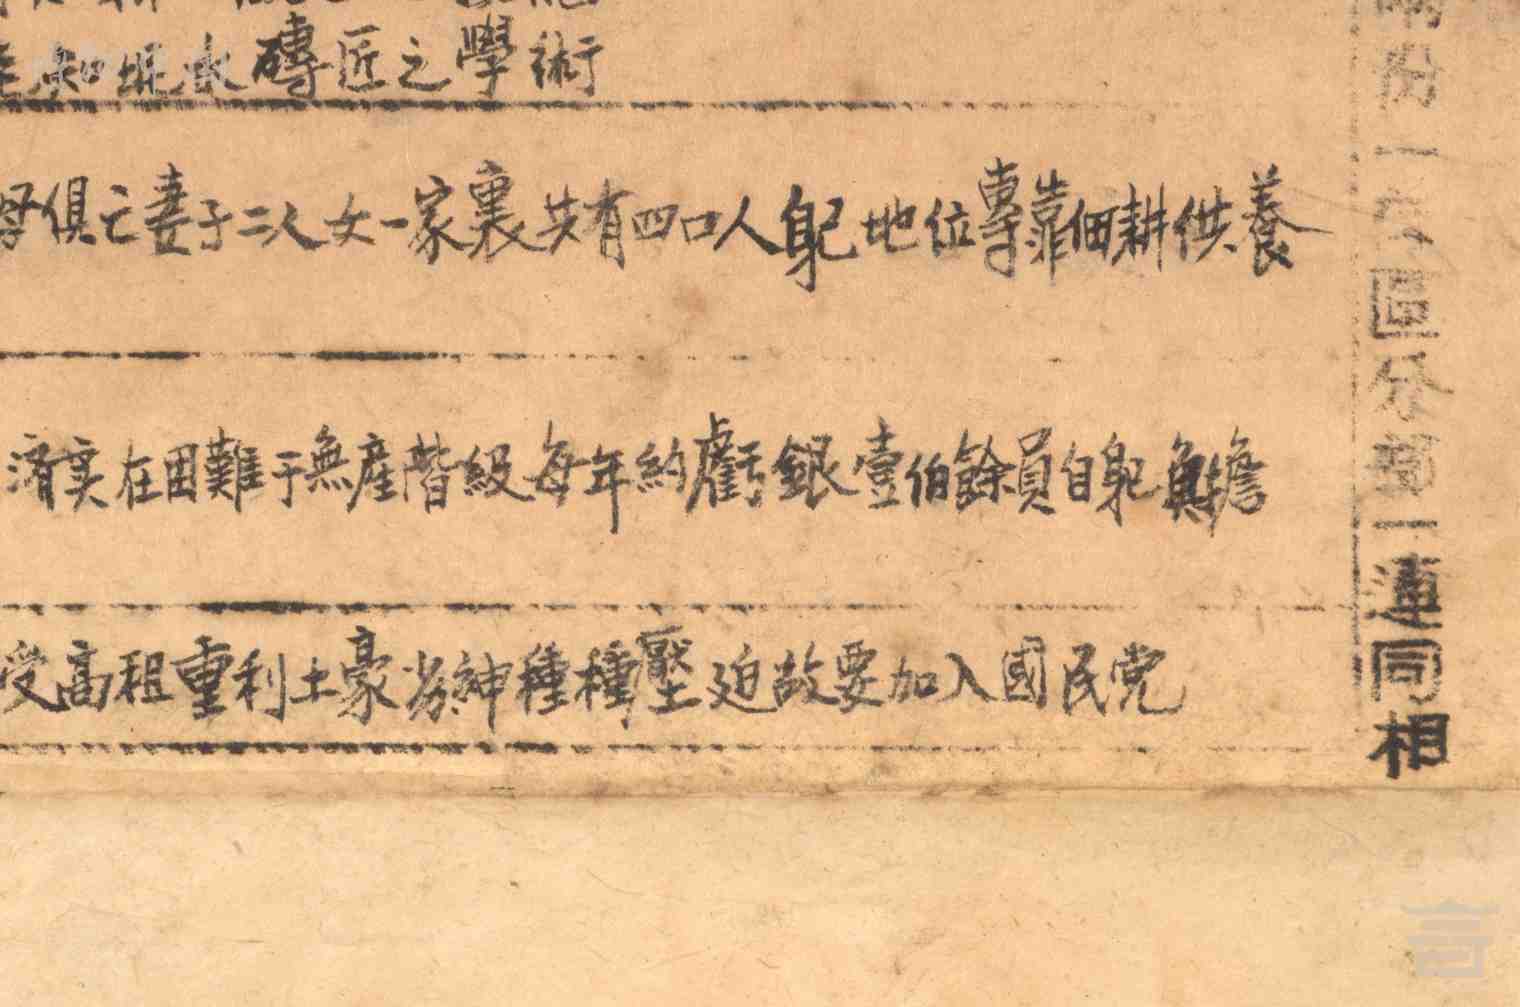 知坭水磚匠之學術
母俱亡妻子二人女一家裏共有四口人躬地位專靠佃耕供養
濟实在困難于無產階級每年約虧銀壹伯餘員自躬負擔
受高租重利土豪劣紳種種壓迫故要加入國民党
份一
區分部一連同相